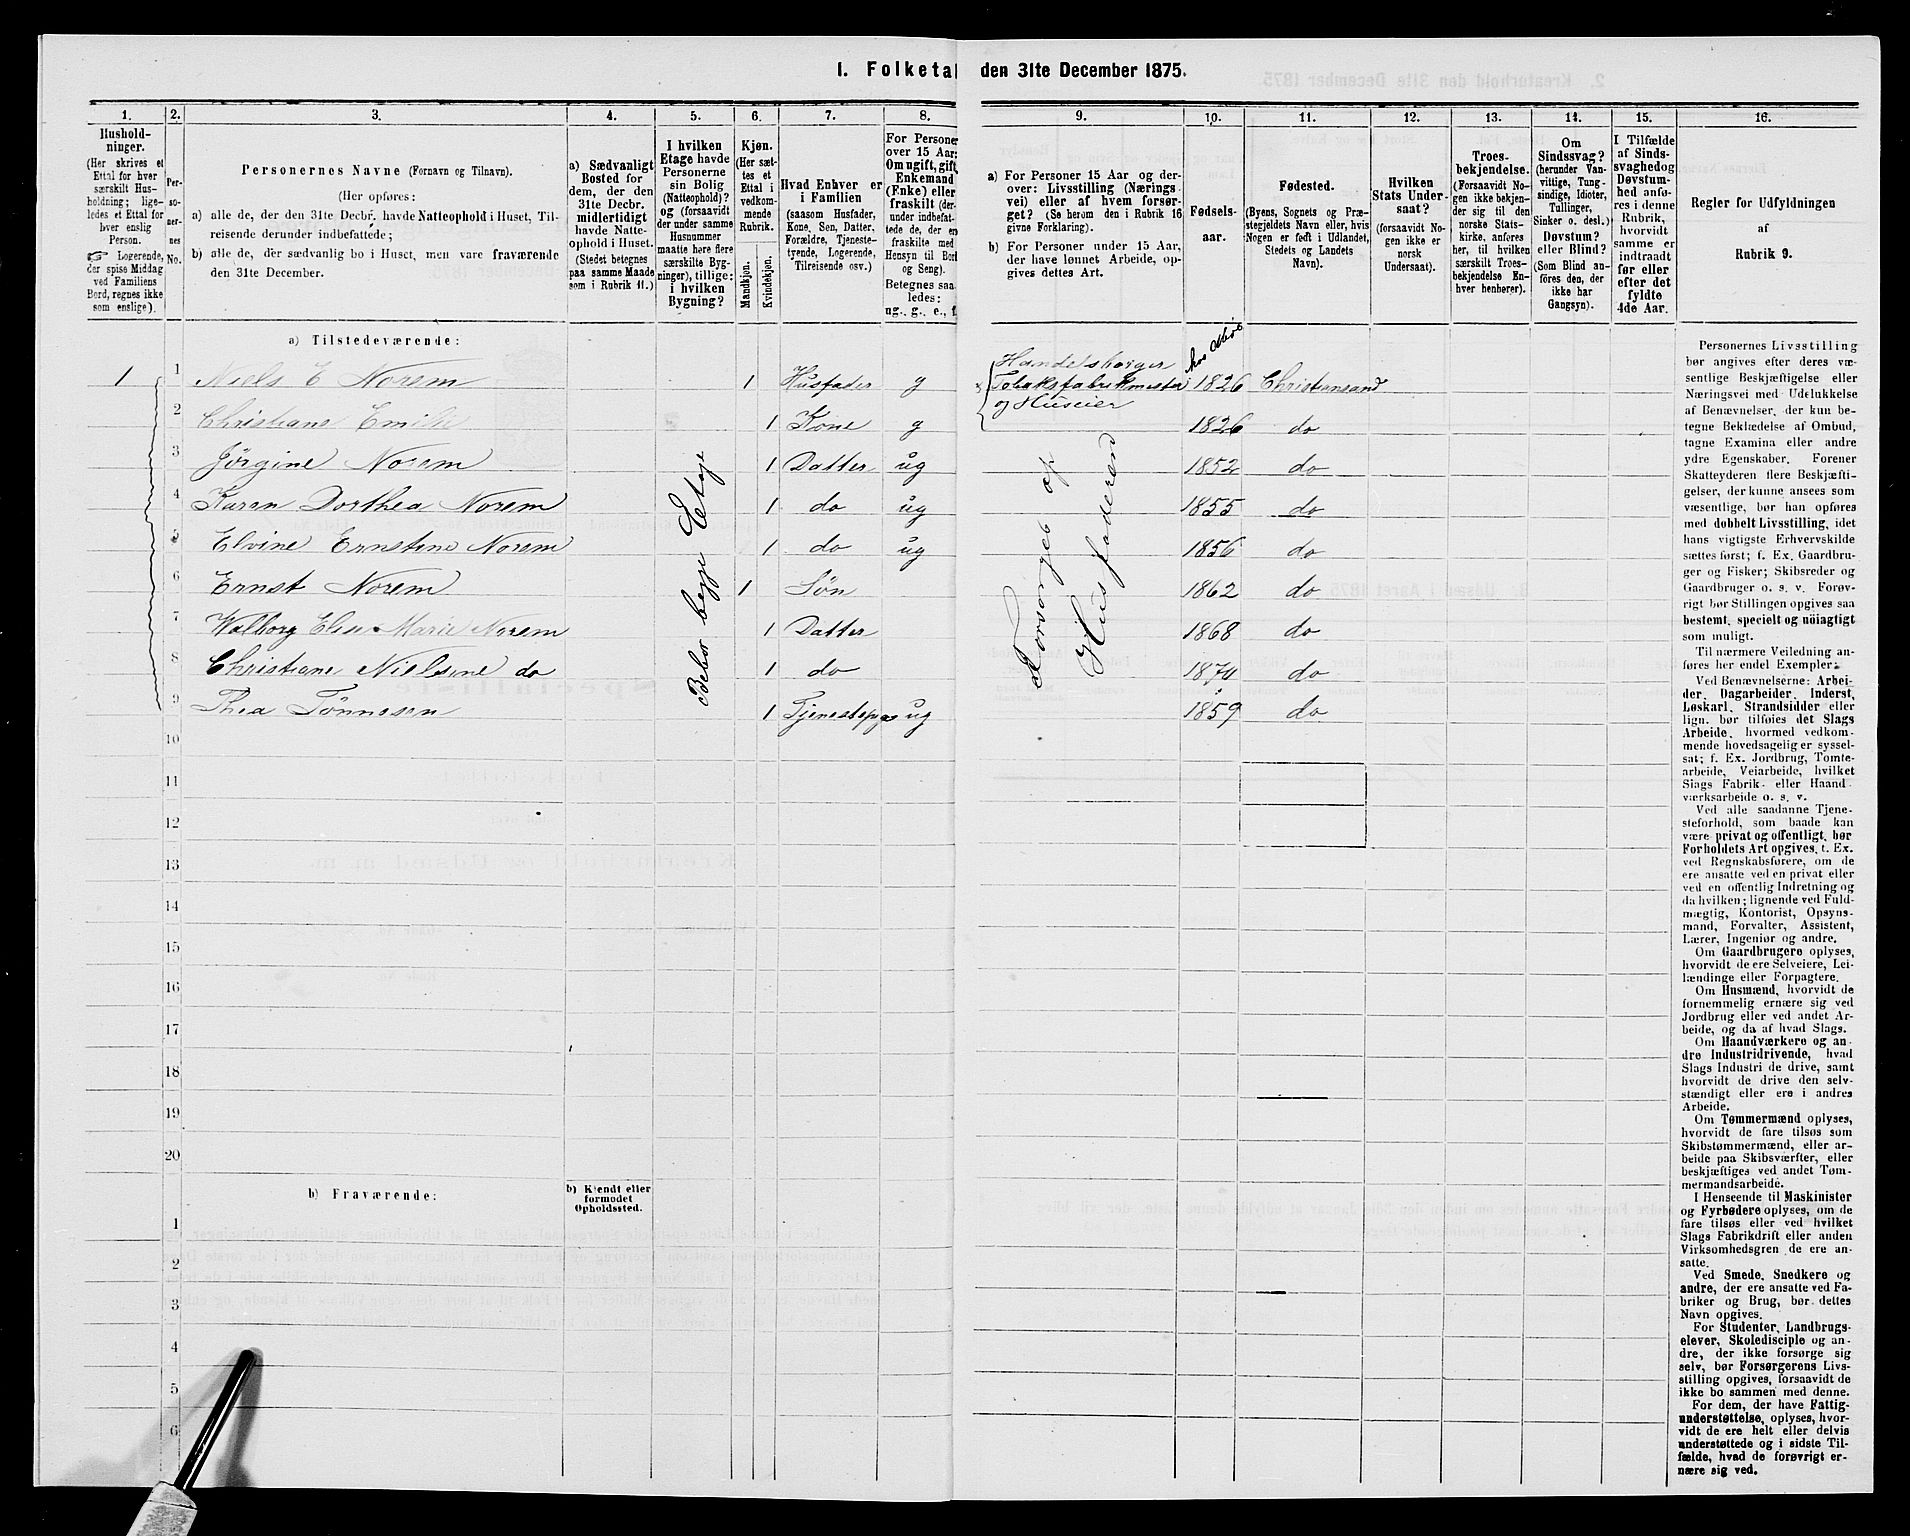 1. Folketal den 31te December 1875.
1.
Hushold-
ninger.
(Her skrives et
Ettal for hver
særskilt Hus-
holdning; lige-
ledes et Ettal for
hver enslig
Person.
Logerende,
der spise Middag
ved Familiens
Bord, regnes ikke
som enslige).
2.
Per-
so-
ner-
nes
No.
3.
Personernes Navne (Fornavn og Tilnavn).
(Her opføres:
a) alle de, der den 31te Decbr. havde Natteophold i Huset, Til-
reisende derunder indbefattede;
b) alle de, der sædvanlig bo i Huset, men vare fraværende
den 31te December.
4.
a) Sædvanligt
Bosted for
dem, der den
31te Decbr.
midlertidigt
havde Natte-
ophold i Huset.
(Stedet betegnes
paa samme Maade
som i Rubrik 11.)
5.
I hvilken
Etage havde
Personerne
sin Bolig
(Natteophold)?
og (forsaavidt
der under samme
Husnummer
maatte høre flere
særskilte Byg-
ninger), tillige:
i hvilken
Bygning?
6.
Kjøn.
(Her sæt-
tes et
Ettal i
vedkom-
mende
Rubrik.
Mandkjøn.
Kvindekjøn.
7.
Hvad Enhver er
i Familien
(saasom Husfader,
Kone, Søn, Datter,
Forældre, Tjeneste-
tyende, Logerende,
Tilreisende osv.)
8.
For Persone
over 15 Aar:
Om ugift, gift,
Enkemand
(Enke) eller
fraskilt (der-
under indbefat-
tede de, der ere
fraskilte med
Hensyn til Bord
og Seng).
Betegnes saa
ledes:
ug., g., e., f.
9.
a) For Personer 15 Aar og der-
over: Livsstilling (Nærings
vei) eller af hvem forsør-
get? (Se herom den i Rubrik 16
givne Forklaring).
b) For Personer under 15 Aar,
der have lønnet Arbeide, op-
gives dettes Art.
10.
Fødsels-
aar.
11.
Fødested.
(Byens, Sognets og Præ-
stegjeldets Navn eller, hvis
Nogen er født i Udlandet,
Stedets og Landets
Navn).
12.
Hvilken
Stats Under-
saat?
(forsaavidt No-
gen ikke er
norsk
Undersaat).
13.
Troes-
bekjendelse.
(Forsaavidt No-
gen ikke bekjen-
der sig til den
norske Stats-
kirke, anføres
her, til hvilken
særskilt Troes-
bekjendelse En-
hver henhører).
14.
Om
Sindssvag?
(herunder Van-
vittige, Tung-
sindige, Idioter,
Tullinger,
Sinker o. desl.)
Døvstum?
eller Blind?
(Som Blind an-
føres den, der
ikke har
Gangsyn).
15.
I Tilfælde
af Sinds-
svaghed og
Døvstum-
hed anfø-
res i denne
Rubrik,
hvorvidt
samme er
indtraadt
før eller
efter det
fyldte
4de Aar.
16.
Regler for Udfyldningen
af
Rubrik 9.
a) Tilstedeværende:
1 1 Niels E Norem 1 Husfader g Handelsborger Tobaksfabrikmester og Huseier 1826 Christiansand
2 Christiane Emilie 1 Kone g 1826 do
3 Jørgine Norem 1 Datter ug 1852 do
4 Karen Dorthea Norem 1 do ug 1855 do
5 Elvine Ernstine Norem 1 do ug 1856 do
6 Ernst Norem 1 Søn 1862 do
7 Walborg Elise Marie Norem 1 Datter 1868 do
8 Christiane Nielsine do 1 do 1870 do
9 Thea Tønnesen 1 Tjenestepge ug 1859 do
Bebor begge Etage
Forsørges af
Husfaderen
10
11
12
13
14
15
16
17
18
19
20
b) Fraværende:
b) Kjendt eller
formodet
Opholdssted.
1
2
3
4
5
6
Personernes Livsstilling
bør angives efter deres væ-
sentlige Beskjæftigelse eller
Næringsvei med Udelukkelse
af Benævnelser, der kun be-
tegne Beklædelse af Ombud,
tagne Examina eller andre
ydre Egenskaber. Forener
Skatteyderen flere Beskjæfti-
gelser, der kunne ansees som
væsentlige, bør han opføres
med dobbelt Livsstilling, idet
hans vigtigste Erhvervskilde
sættes først; f. Ex. Gaardbru-
ger og Fisker; Skibsreder og
Gaardbruger o. s. v. Forøv-
rigt bør Stillingen opgives saa
bestemt, specielt og nøiagtigt
som muligt.
Til nærmere Veiledning an-
føres her endel Exempler:
Ved Benævnelserne: Arbei-
der, Dagarbeider, Inderst,
Løskarl, Strandsidder eller
lign. bør tilføies det Slags
Arbeide, hvormed vedkom-
mende hovedsagelig er syssel-
sat; f. Ex. Jordbrug, Tomte-
arbeide, Veiarbeide, hvilket
Slags Fabrik- eller Haand-
værksarbeide o. s. v.
Ved alle saadanne Tjene-
steforhold, som baade kan
være privat og offentligt, bør
Forholdets Art opgives, t. Ex.
ved Regnskabsførere, om de
ere ansatte ved en privat eller
ved en offentlig Indretning og
da hvilken; lignende ved Fuld-
mægtig, Kontorist, Opsyns-
mand, Forvalter, Assistent,
Lærer, Ingeniør og andre.
Om Gaardbrugere oplyses,
hvorvidt de ere Selveiere, Lei-
lændinge eller Forpagtere.
Om Husmænd, hvorvidt de
fornemmelig ernære sig ved
Jordbrug eller ved andet Ar-
beide, og da af hvad Slags.
Om Haandværkere og an-
dre Industridrivende, hvad
Slags Industri de drive, samt
hvorvidt de drive den selv-
stændigt eller ere i andres
Arbeide.
Om Tømmermænd oplyses,
hvorvidt de fare tilsøs som
Skibstømmermænd, eller ar-
beide paa Skibsværfter, eller
beskjæftiges ved andet Tøm-
mermandsarbeide.
I Henseende til Maskinister
og Fyrbødere oplyses, om de
fare tilsøs eller ved hvilket
Slags Fabrikdrift eller anden
Virksomhedsgren de ere an-
satte.
Ved Smede, Snedkere og
andre, der ere ansatte ved Fa-
briker og Brug, bør dettes
Navn opgives.
For Studenter, Landbrugs-
elever, Skoledisciple og an-
dre, der ikke forsørge sig
selv, bør Forsørgerens Livs-
stilling opgives, forsaavidt de
ikke bo sammen med denne.
For dem, der have Fattig-
understøttelse, oplyses, hvor-
vidt de ere helt eller delvis
understøttede og i sidste Til-
fælde, hvad de forøvrigt er-
nære sig ved.